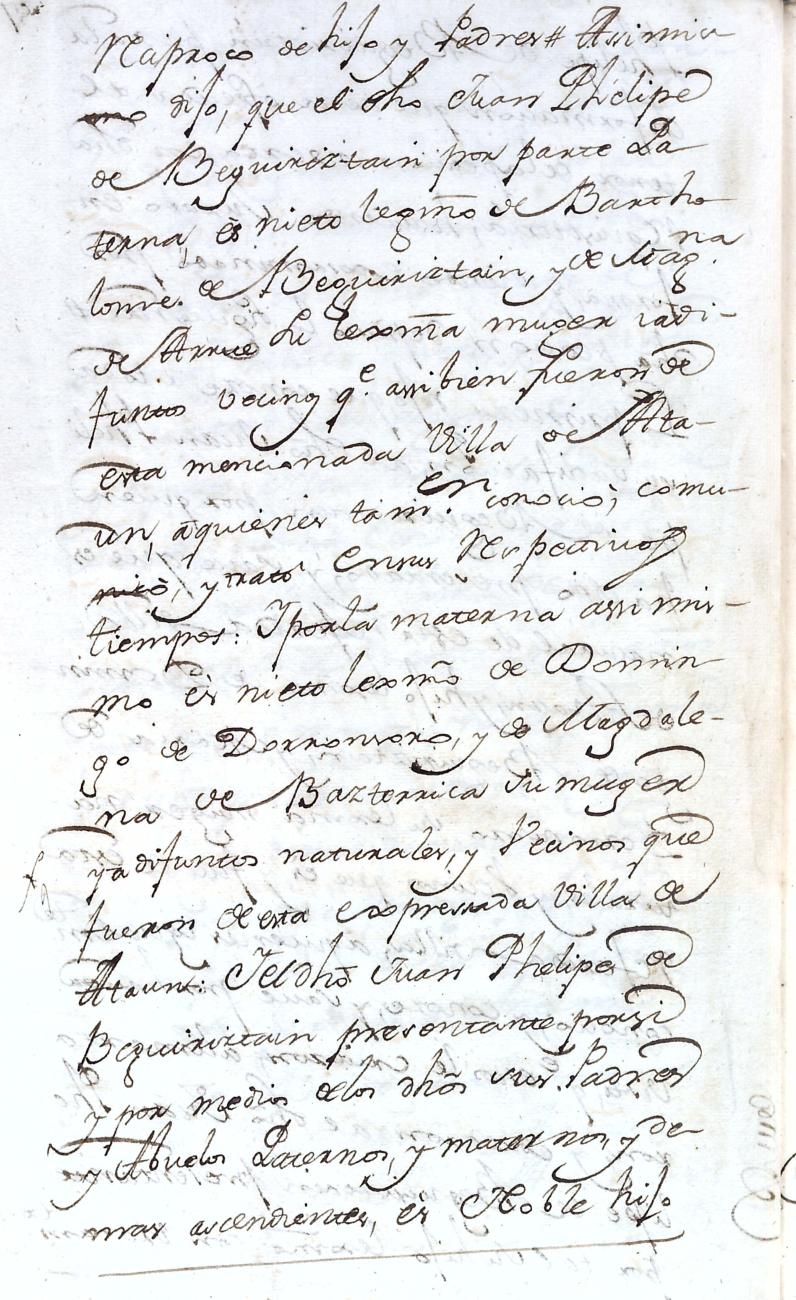 Reciproco de hijo y Padres # Assimis
mo dijo, que el dho Juan Phelipe
de Beguiriztain por parte Pa
terna, ès nieto legmo de Bartho
lomè. de Beguiriztain, y de Magna
de Arrue su lexma muger iadi-
funtos vecinos qe. assi bien fueron de
esta mencionada Villa de Ata-
un, a quienes tamen. conociò, comu-
nicò, y tratò ensus Respectivos
tiempos: Y porla materna assi mis-
mo ès nieto lexmo de Domin
go de Dorronsoro, y de Magdale-
na de Bazterrica su muger
ya difuntos naturales, y Vecinos que
fueron de esta expressada Villa de
Ataun: Y el dho Juan Phelipe de
Beguiriztain presentante porsi
y por medio delos dhos sus Padres
y Abuelos Paternos, y maternos, y de
mas ascendientes, ès Noble hijo